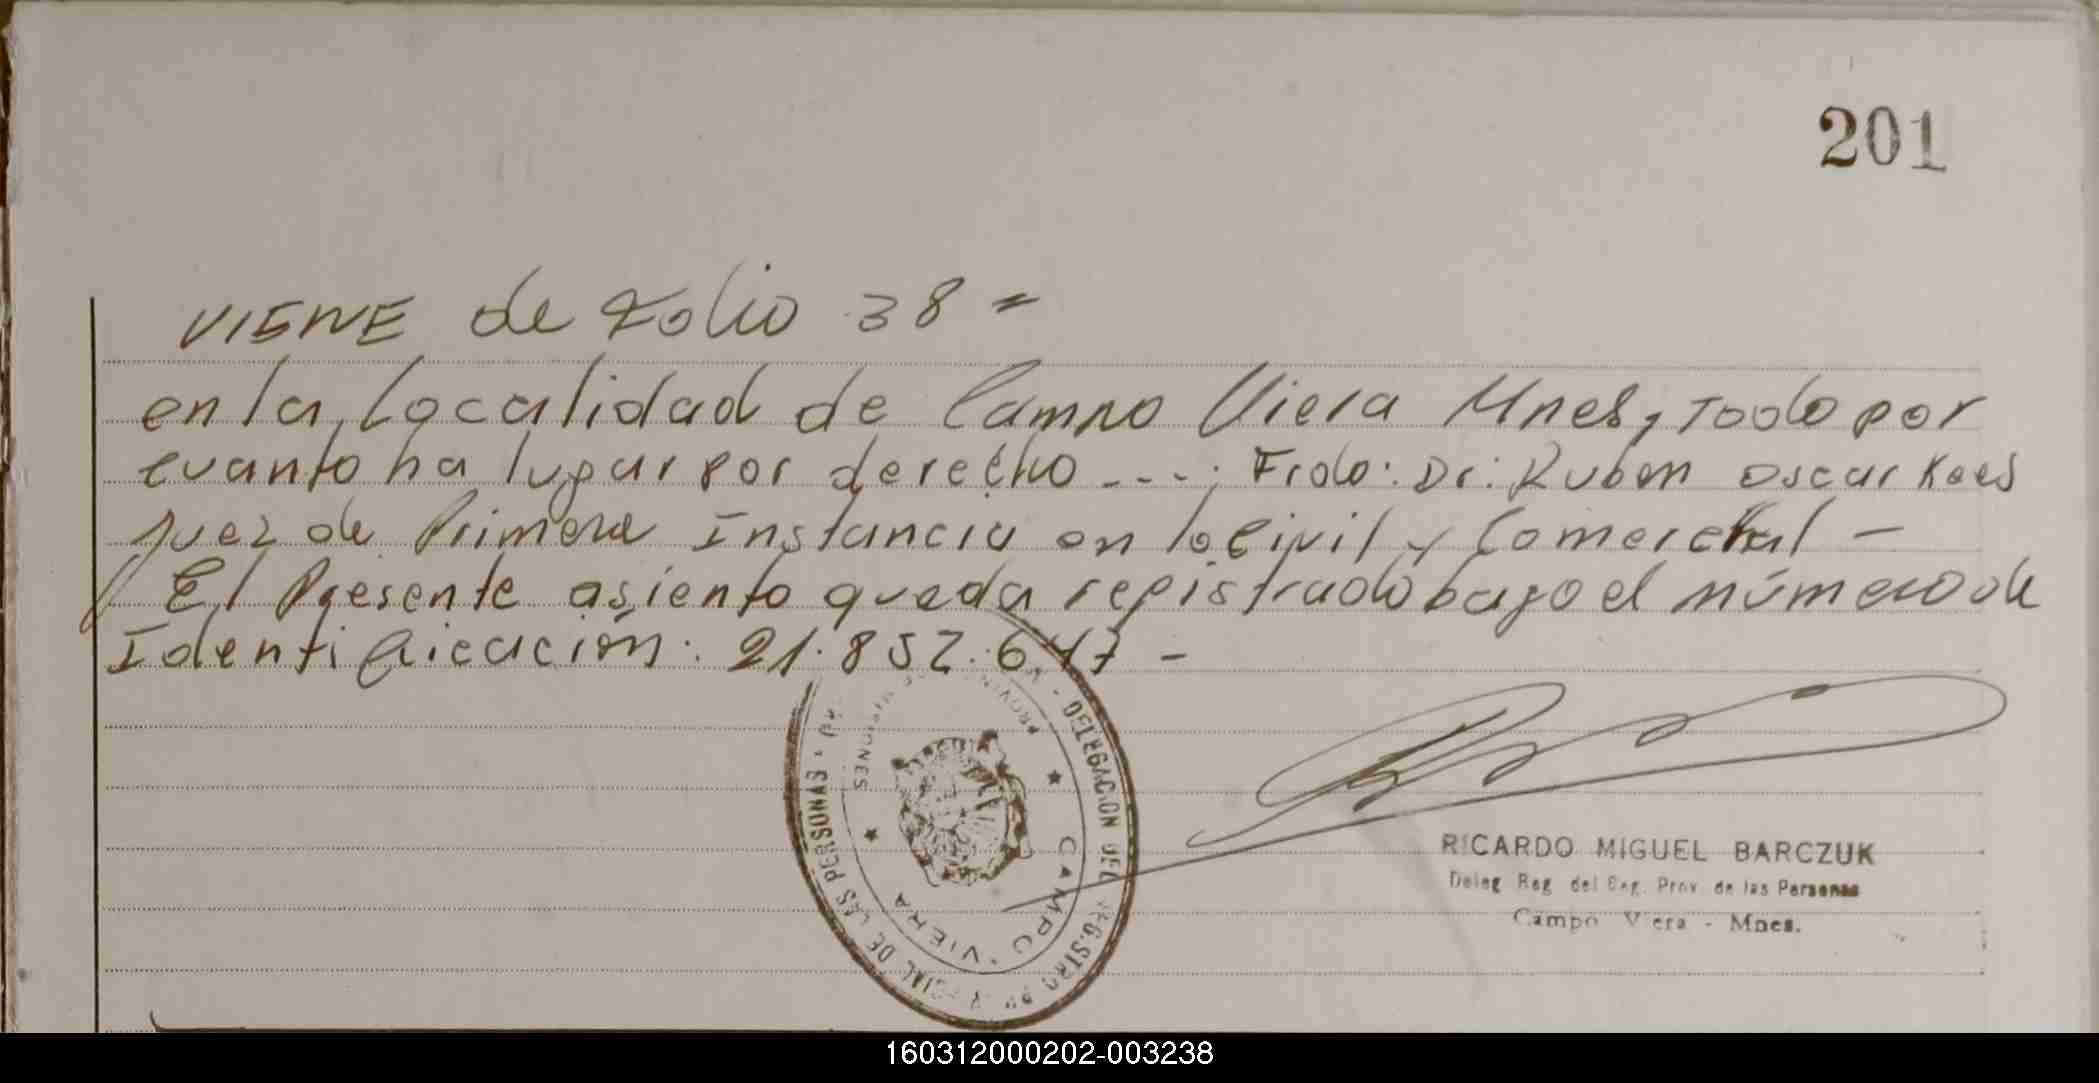 201
VIENE de Folio 38 =
en la Localidad de Campo Viera Mnes, Todo por
cuanto ha lugar por derecho ---; Frdo: Dr: Ruben Oscar
Juez de Primera Instancia en lo Civil y Comercial -
El Presente asiento queda registrado bajo el número de
Identificación: 21.852.647 -
DELEGACION DEL REGISTRO DE LAS PERSONAS
PROVINCIA DE MISIONES
CAMPO VIERA
RICARDO MIGUEL BARCZUK
Deleg Reg del Reg. Prov. de las Personas
Campo Viera - Mnes.
160312000202-003238